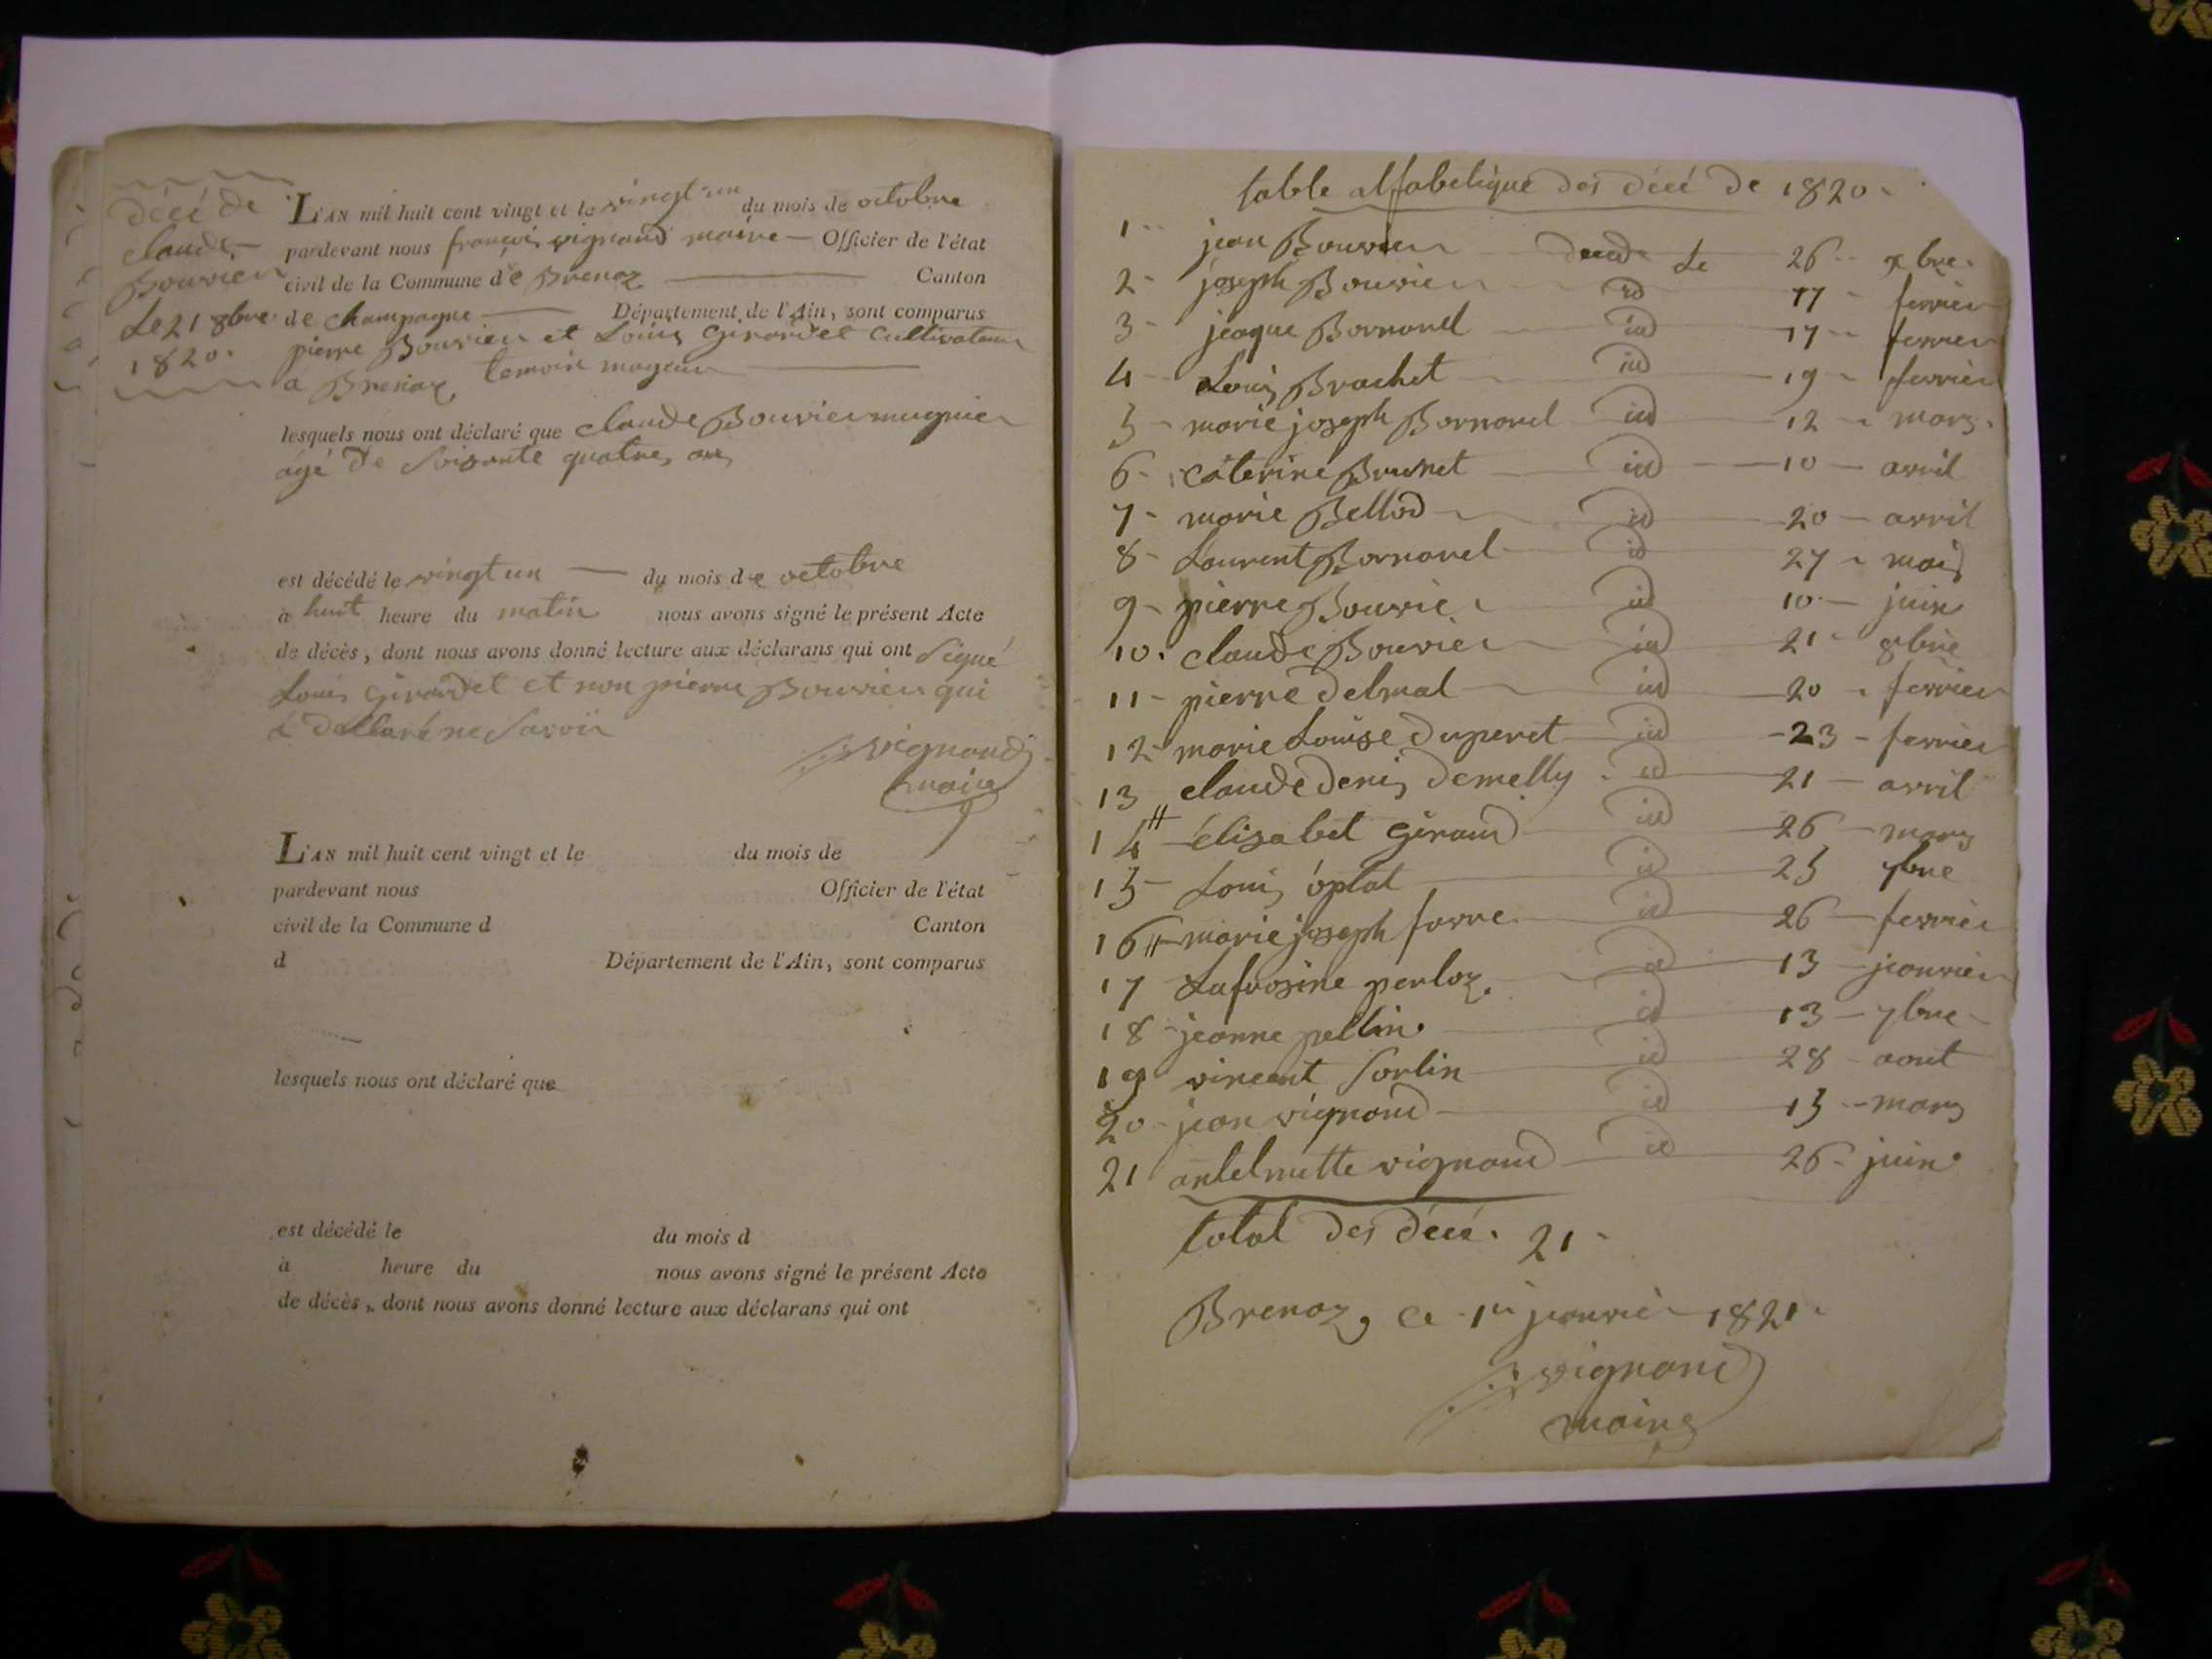 décé de
claude
Bouvier
Le 21 8bre
1820.
L'AN mil huit cent vingt et le vingt un du mois de octobre
pardevant nous françois vignand maire Officier de l'état
civil de la Commune de Brenaz Canton
de champagne Département de l'Ain, sont comparus
pierre Bouvier et Louis Girardet cultivateur
a Brenaz temoin mageur
lesquels nous ont déclaré que claude Bouvier mugnier
agé de soisante quatre ans
est décédé le vingt un du mois de octobre
à huit heure du matin nous avons signé le présent Acte
de décès, dont nous avons donné lecture aux déclarans qui ont signé
Louis Girardet et non pierre Bouvier qui
a declaré ne savoir
vignand
maire
L'AN mil huit cent vingt et le du mois de
pardevant nous Officier de l'état
civil de la Commune d Canton
d Département de l'Ain, sont comparus
lesquels nous ont déclaré que
est décédé le du mois d
à heure du nous avons signé le présent Acte
de décès, dont nous avons donné lecture aux déclarans qui ont
table alfabetique des décé de 1820
1 jean Bouvier decede Le 26 xbre
2 joseph Bouvier id 17 fevrier
3 jeaque Bornarel id 17 fevrier
4 Louis Brachet id 19 fevrier
5 marie joseph Bornarel id 12 mars
6 caterine Brunet id 10 avril
7 marie Bellod id 20 avril
8 Laurent Bornarel id 27 mais
9 pierre Bouvier id 10 juin
10 claude Bouvier id 21 8bre
11 pierre delmal id 20 fevrier
12 marie Louise duperet id 23 fevrier
13 claude denis demelly id 21 avril
14 élisabet Giraud id 26 mars
15 Louis óptal id 25 7bre
16 marie joseph favre id 26 fevrier
17 Lafrosine perloz id 13 jeanvier
18 jeanne pellin id 13 7bre
19 vincent Sorlin id 28 aout
20 jean vignand id 15 mars
21 antelmette vignand id 26 juin
total des décé. 21
Brenaz, ce 1er jeanvier 1821
vignand
maire